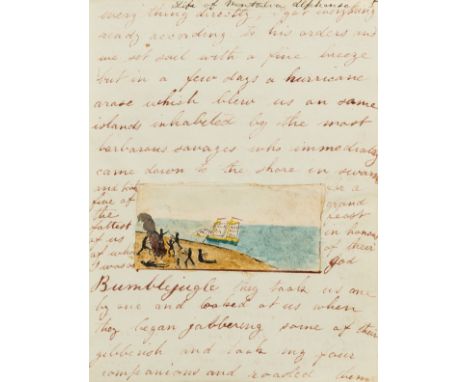 Life of Alphonse
every thing directly, I got everything
ready according to his orders and
we set sail with a fine breeze
but in a few days a hurricane
arose which blew us on some
islands inhabeted by the most
barbarous savages who immediatly
came down to the shore in swarms
and
five of
the
fattest
of us
of whom
I was
a
grand
feast
in honour
of their
god
Bumblejugle they took us one
by one and looked at us when
they began jabbering some of their
gibberish and took my four
companions and roasted them